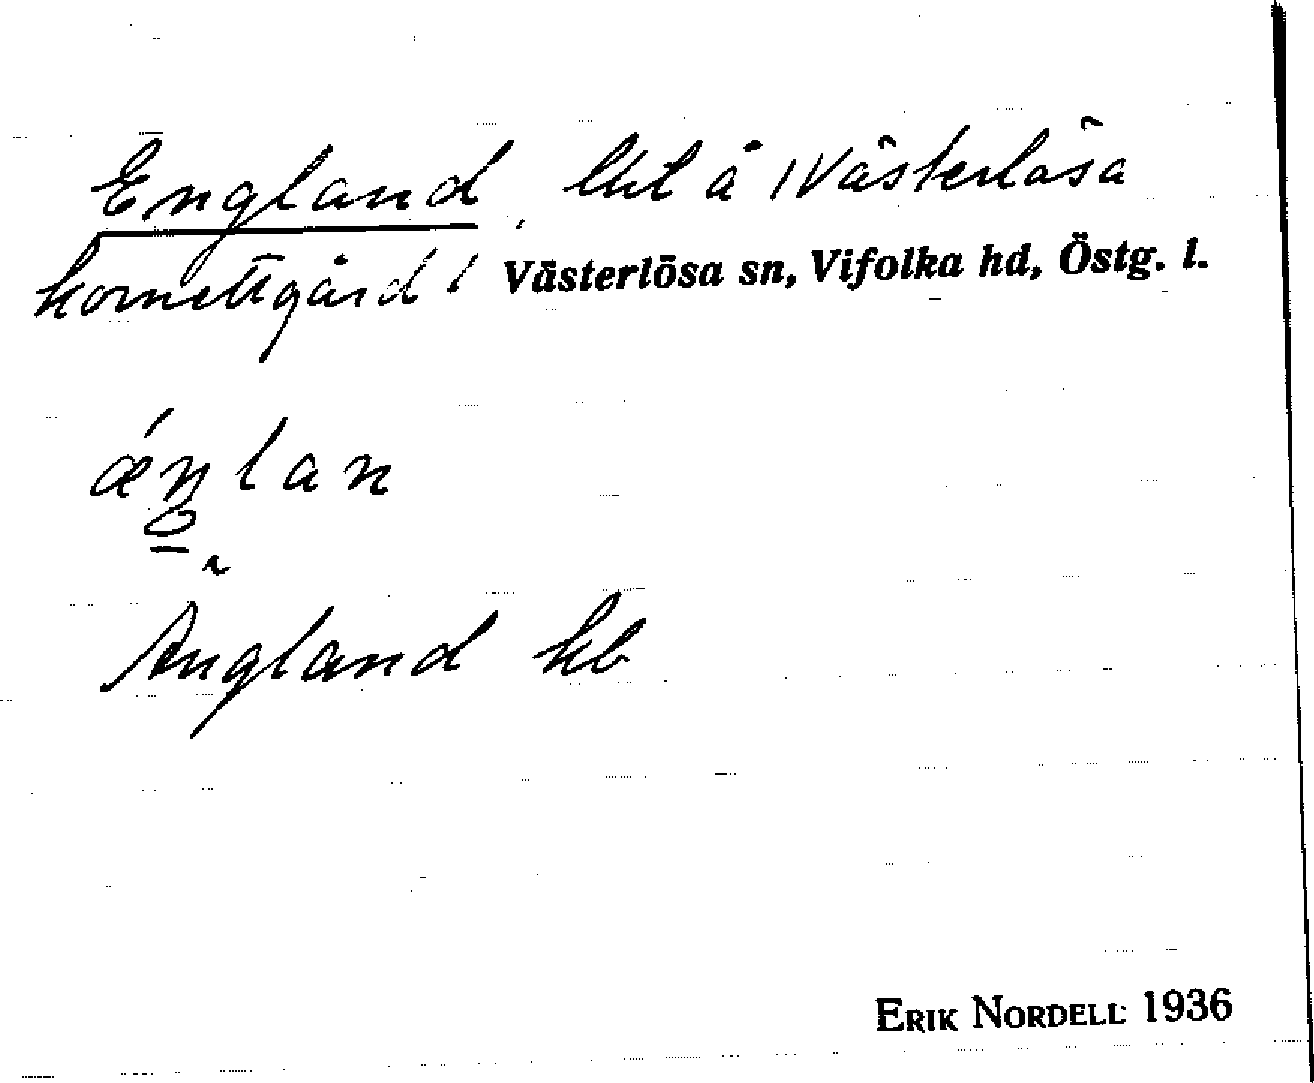 England, lht å Västerlösa
kornettgård i Västerlösa sn, Vifolka hd, Östg. l.
ǽŋlan
Ängland kb
ERIK NORDELL 1936